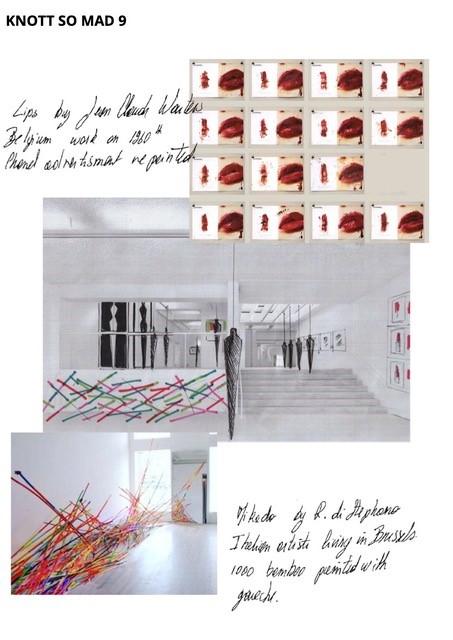 KNOTT SO MAD 9
Lips by Jean Claude Wouters
Belgium work on 1960th
advertisment repainted
Mikado by R. di Stephano
Italian artiste living in Brussels.
1000 bamboo painted with
gouache.